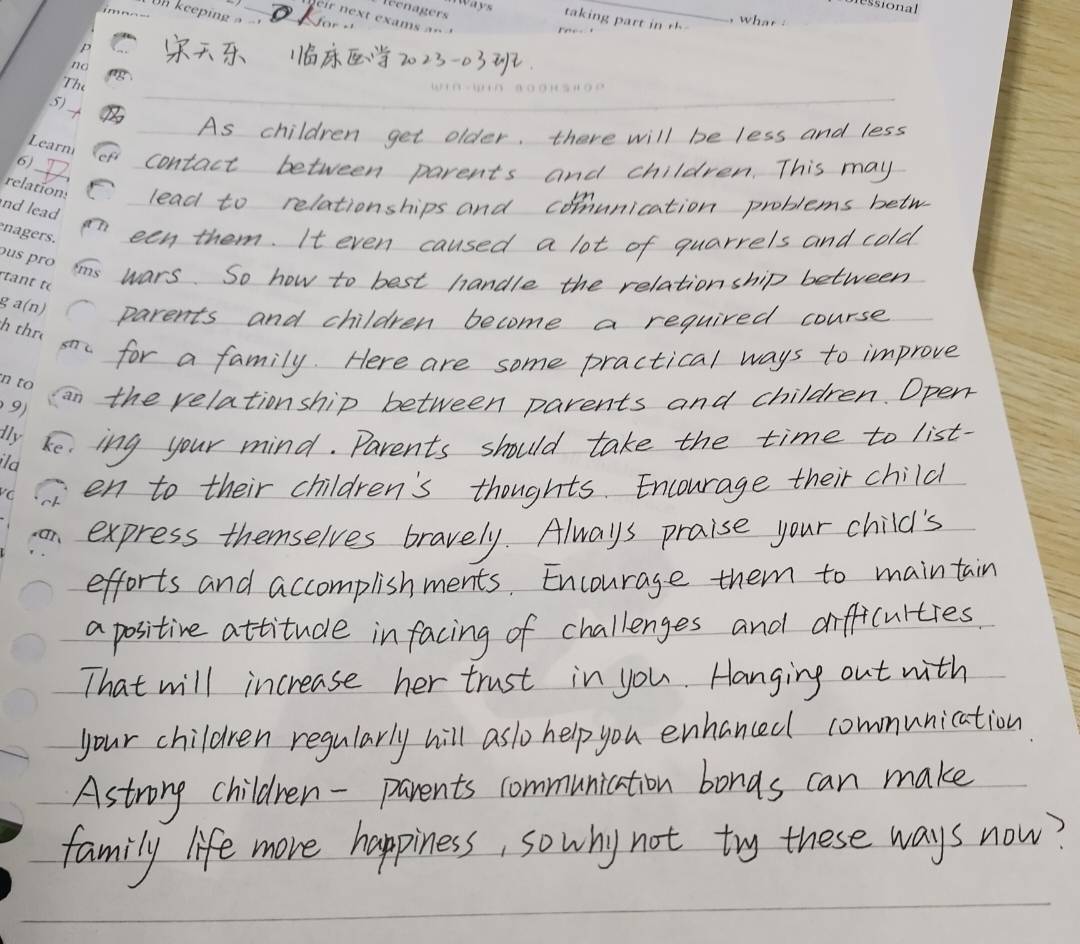 on keeping a
their next exams and
teenagers
ways
taking part in th
, what
essional
宋天乐 临床医学2023-03班.
WIN-WIN BOOKSHOP
As children get older, there will be less and less
contact between parents and children. This may
lead to relationships and communication problems betw
een them. It even caused a lot of quarrels and cold
wars. So how to best handle the relationship between
parents and children become a required course
for a family. Here are some practical ways to improve
the relationship between parents and children. Open-
ing your mind. Parents should take the time to list-
en to their children's thoughts. Encourage their child
express themselves bravely. Always praise your child's
efforts and accomplishments. Encourage them to maintain
a positive attitude in facing of challenges and difficulties.
That will increase her trust in you. Hanging out with
your children regularly will aslo help you enhanced communication.
A strong children- parents communication bonds can make
family life more happiness, so why not try these ways now?
5)
Learni
6) D
relation
nd lead
enagers.
ous pro
rtant to
g a(n)
h thr
n to
9)